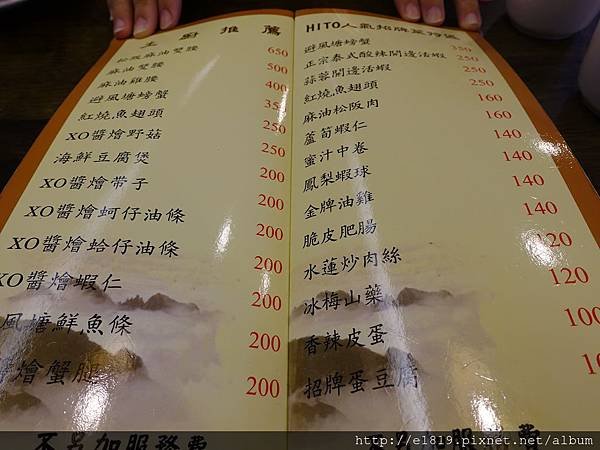 主廚推薦
松阪麻油雙腰 650
麻油雙腰 500
麻油雞腰 400
避風塘螃蟹 35
紅燒魚翅頭 250
XO醬燴野菇 250
海鮮豆腐煲 200
XO醬燴帶子 200
XO醬燴蚵仔油條 200
XO醬燴蛤仔油條 200
XO醬燴蝦仁 200
風塘鮮魚條 200
燴蟹腿 200
不另加服務費
HITO人氣招牌
避風塘螃蟹 350
正宗泰式酸辣開邊活蝦 250
蒜蓉開邊活蝦 250
紅燒魚翅頭 250
麻油松阪肉 160
蘆筍蝦仁 160
蜜汁中卷 140
鳳梨蝦球 140
金牌油雞 140
脆皮肥腸 140
水蓮炒肉絲 120
冰梅山藥 120
香辣皮蛋 100
招牌蛋豆腐
不另加服務費
http://e1819.pixnet.net/album